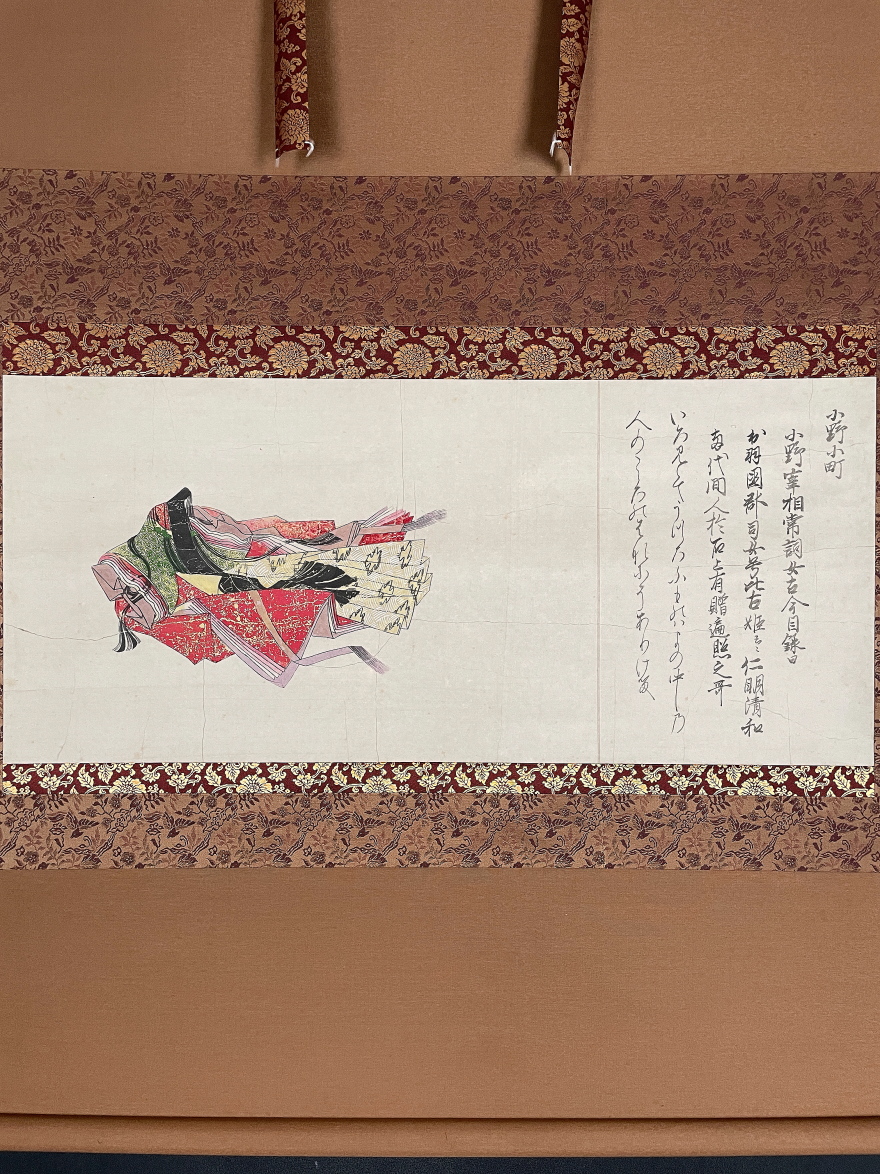 小野小町
小野宰相常詞女古今目録曰
出羽国郡司女号比古姫云々仁明清和
両代間人於石上有贈遍照之哥
いろ見えてうつろふものはよの中乃
人のこゝろのはなにそありける